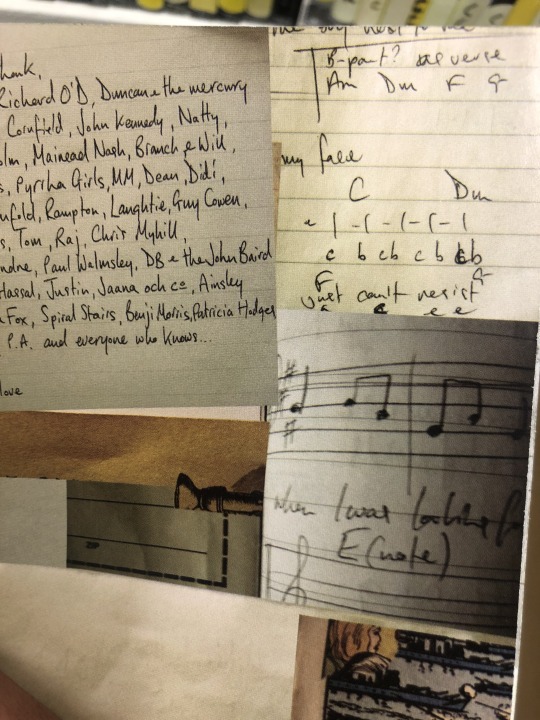 hank,
Richard O'D, Duncan & the mercury
Cornfield, John Kennedy, Natty,
olm, Mainead Nash, Branch & Will,
s, Pyrrha Girls, MM, Dean, Didi,
nfold, Rampton, Laughtie, Guy Cowen,
s, Tom, Raj, Chris Myhill,
ndre, Paul Walmsley, DB & the John Baird
Hassal, Justin, Jaana och co, Ainsley
Fox, Spiral Stairs, Benji Morris, Patricia Hodges
P.A. and everyone who knows...
love
B-part? verse
Am Dm F G
my face
C Dm
c b cb c b cb
F G
Just can't resist
e e
When I was looking f
E (note)